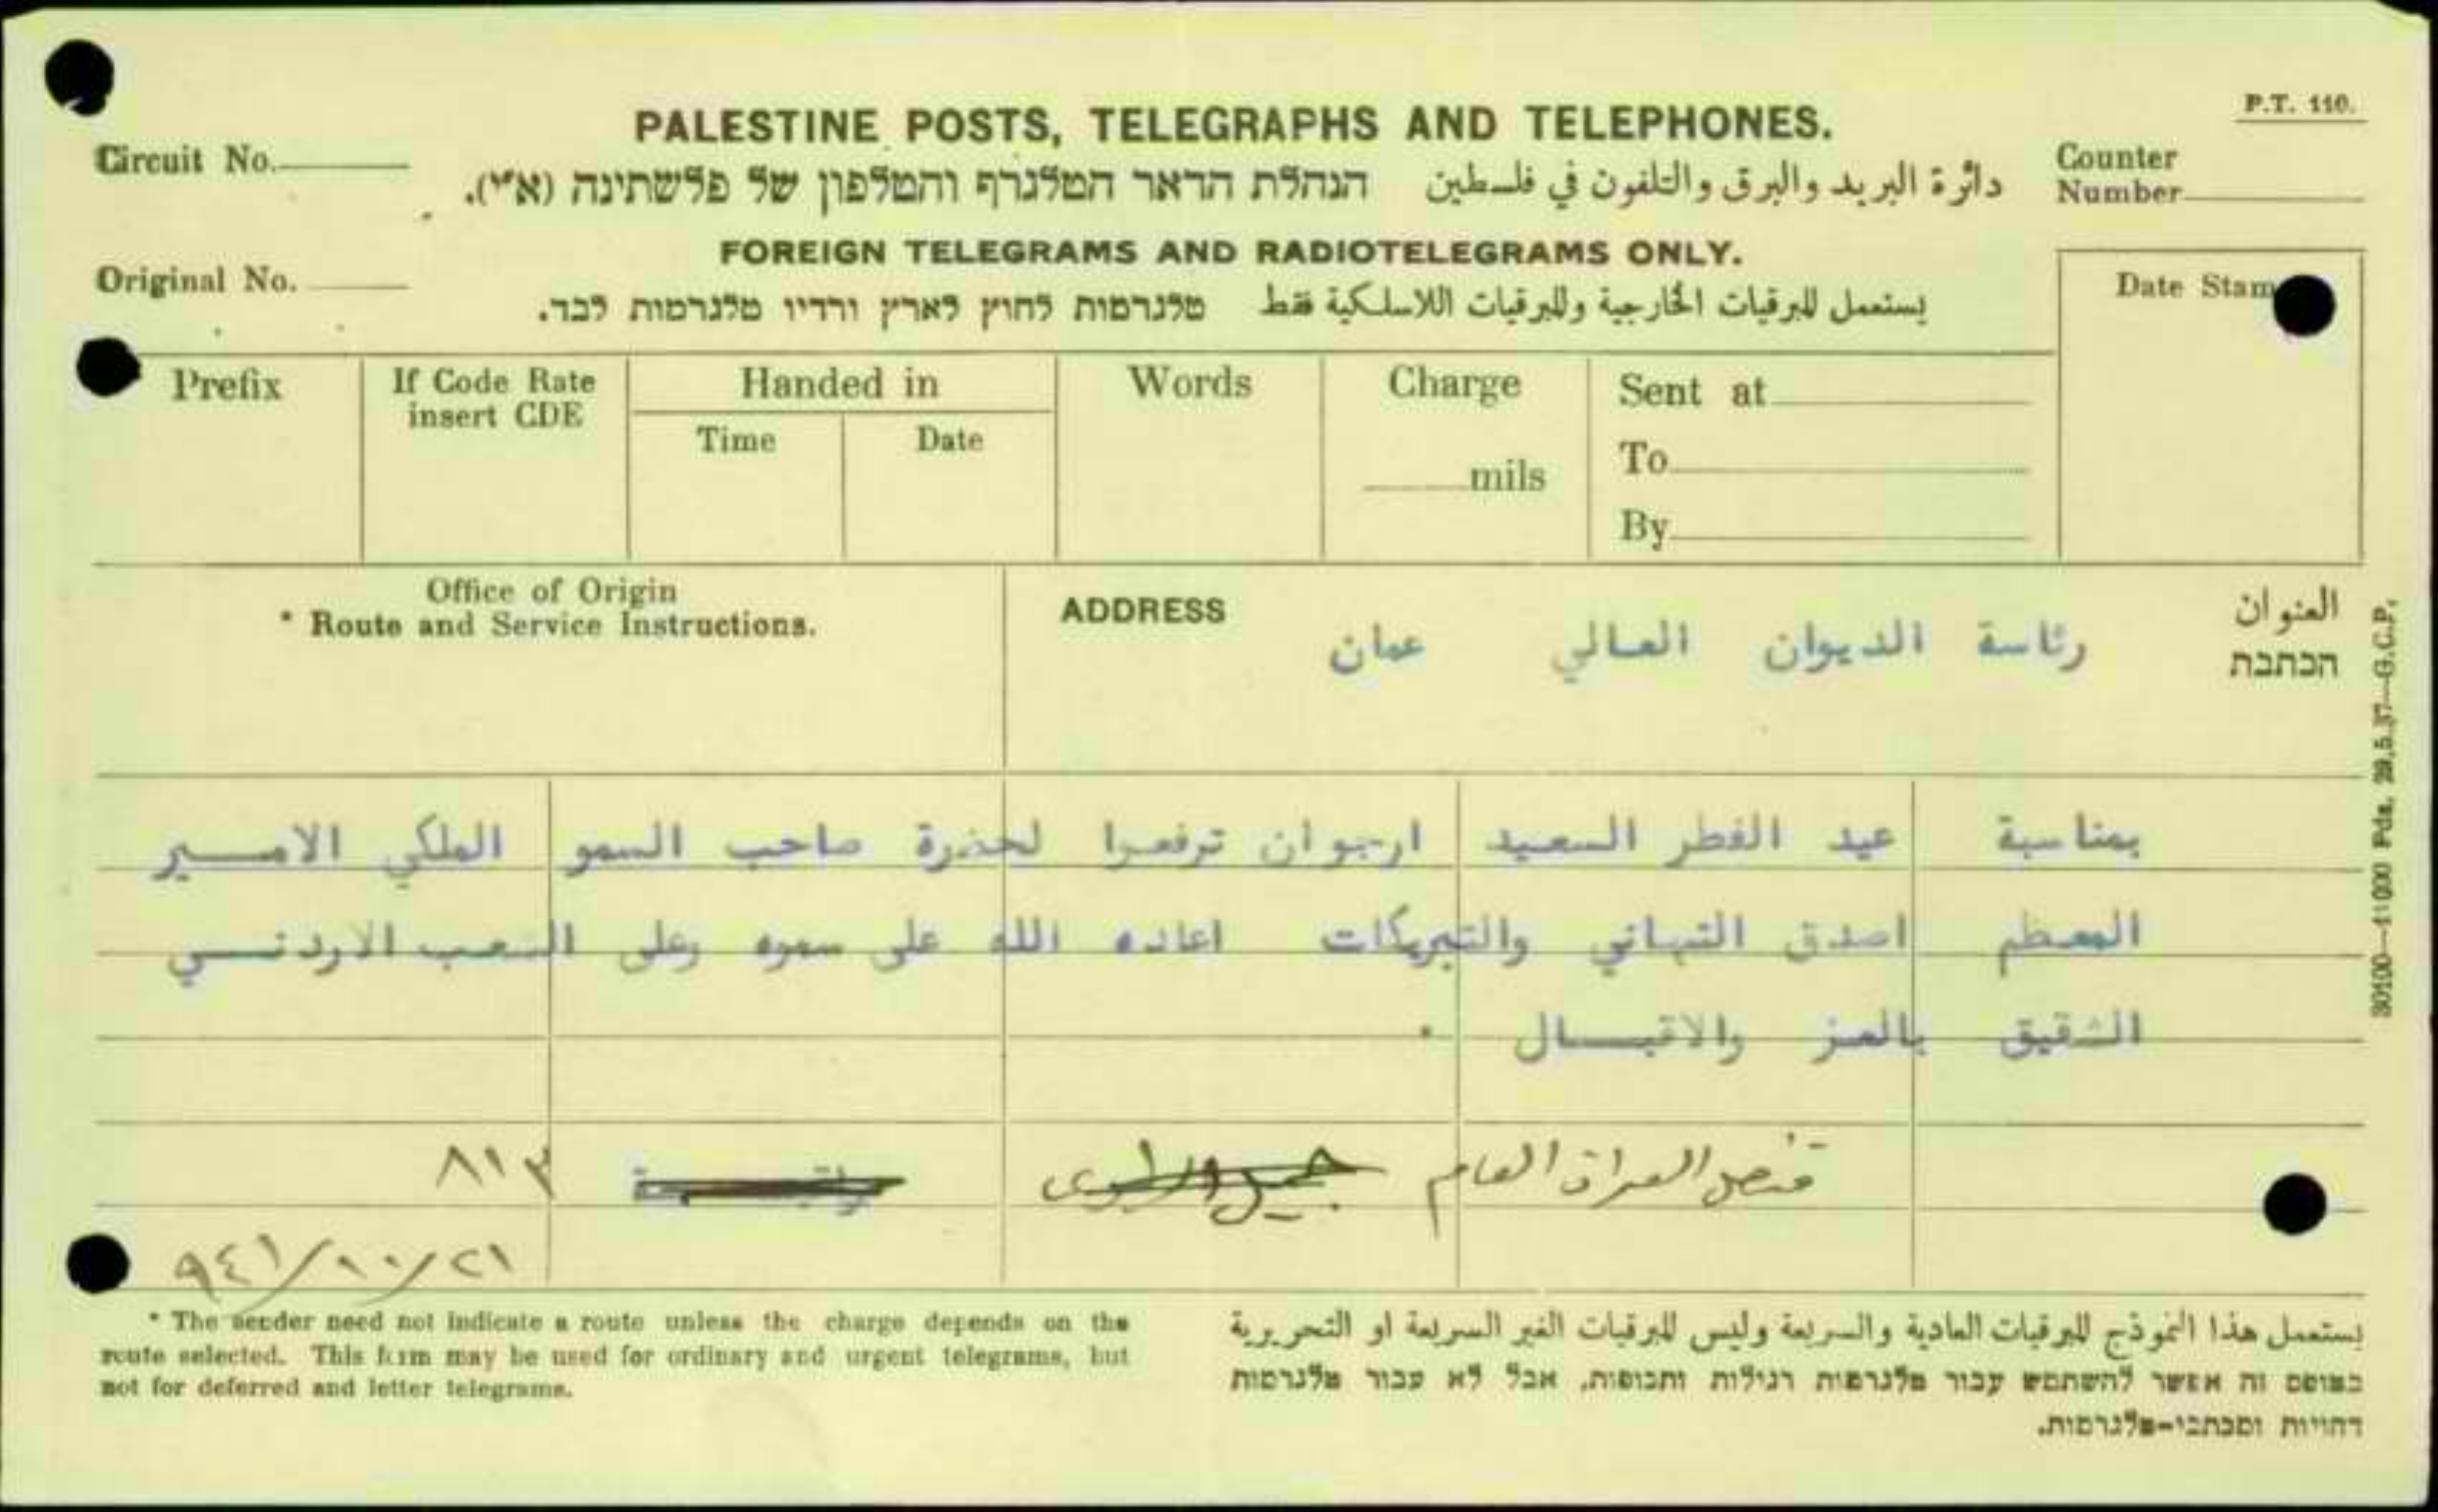 P.T. 110.
PALESTINE POSTS, TELEGRAPHS AND TELEPHONES.
Circuit No.
Counter Number
دائرة البريد والبرق والتلفون في فلسطين הנהלת הדאר הטלגרף והטלפון של פלשתינה (א״י).
FOREIGN TELEGRAMS AND RADIOTELEGRAMS ONLY.
Original No.
Date Stam
يستعمل للبرقيات الخارجية وللبرقيات اللاسلكية فقط טלגרמות לחוץ לארץ ורדיו טלגרמות לבד.
Prefix
If Code Rate
insert CDE
Handed in
Time Date
Words
Charge
mils
Sent at
To
By
Office of Origin
* Route and Service Instructions.
ADDRESS
العنوان
הכתבת
رئاسة الديوان العالي عمان
بمناسبة عيد الفطر السعيد ارجو ان ترفعوا لحضرة صاحب السمو الملكي الامـــير
المعظم اصدق التهاني والتبريكات اعاده الله على سموه وعلى الشعب الاردنـــي
الشقيق بالعز والاقبـــال .
قنصل العراق العام
٨١٣
٢١/١٠/٩٤١
* The sender need not indicate a route unless the charge depends on the
route selected. This form may be used for ordinary and urgent telegrams, but
not for deferred and letter telegrams.
يستعمل هذا النموذج للبرقيات العادية والسريعة وليس للبرقيات الغير السريعة او التحريرية
בטופס זה אפשר להשתמש עבור טלגרמות רגילות ותכופות, אבל לא עבור טלגרמות
דחויות ומכתבי-טלגרמות.
30100—11000 Pds. 29.5.37—G.C.P.